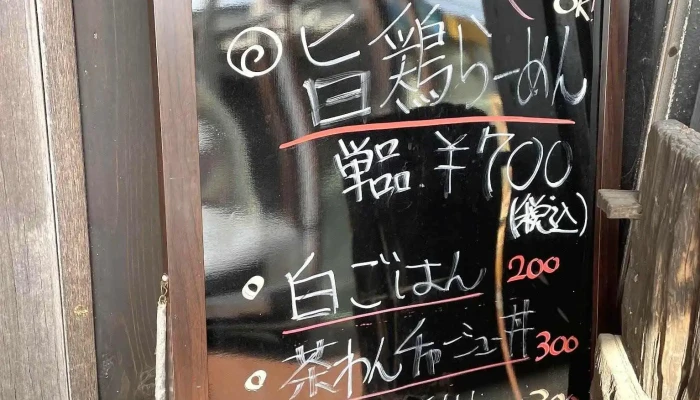 OK!
旨鶏らーめん
単品 ¥700
(税込)
白ごはん 200
茶わんチャーシュー丼 300